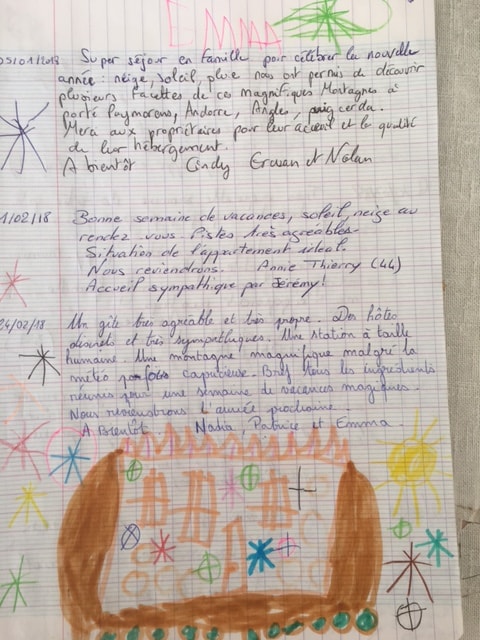 EMMA
05/01/2018 Super séjour en famille pour célébrer la nouvelle
année : neige, soleil, pluie nous ont permis de découvrir
plusieurs facettes de ces magnifiques Montagnes à
porté Puymorens, Andorre, Angles, puig cerda.
Merci aux propriétaires pour leur accueil et la qualité
de leur hébergement.
A bientôt Cindy Erwan et Nolan
1/02/18 Bonne semaine de vacances, soleil, neige au
rendez-vous. Pistes très agréables.
Situation de l'appartement idéal.
Nous reviendrons. Annie Thierry (44)
Accueil sympathique par Jérémy!
24/02/18 Un gîte très agréable et très propre. Des hôtes
discrets et très sympathiques. Une station à taille
humaine. Une montagne magnifique malgré la
météo parfois capricieuse. Bref tous les ingrédients
réunis pour une semaine de vacances magiques.
Nous reviendrons l'année prochaine.
A Bientôt Nadia, Patrice et Emma